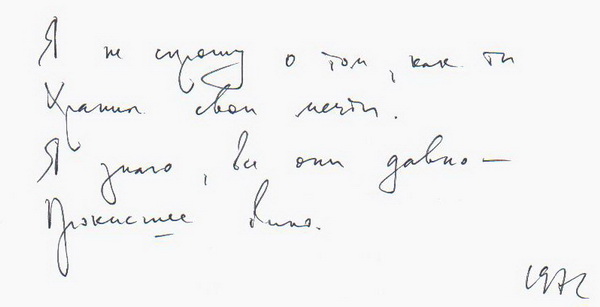 Я не спрошу о том, как ты
Хранил свои мечты.
Я знаю, все они давно –
Прокисшее вино.
1972